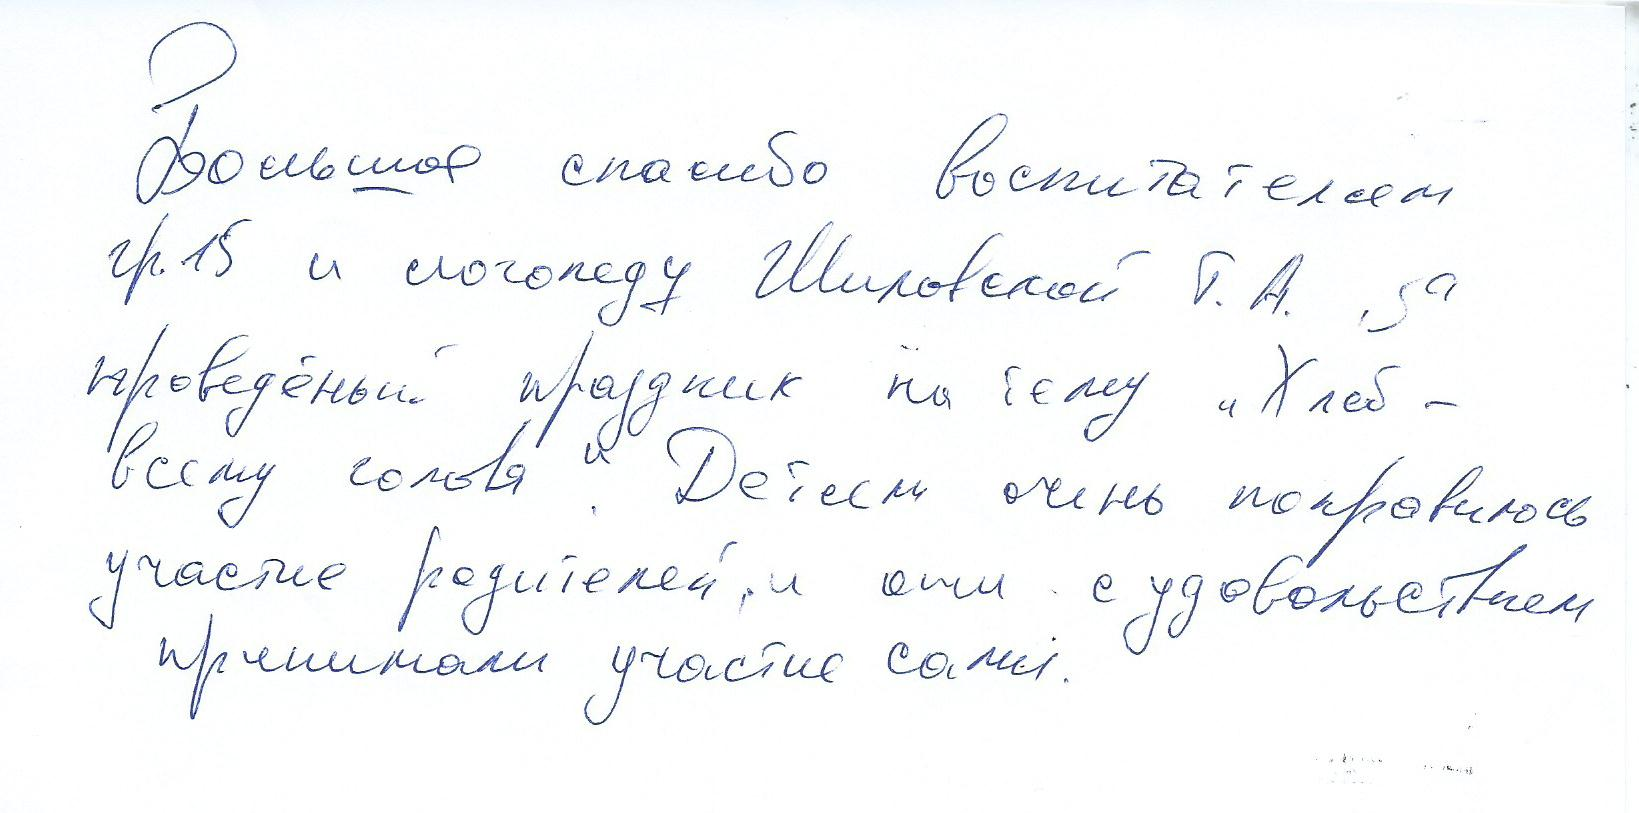 Большое спасибо воспитателям
гр. 15 и логопеду Шиловской Т. А. за
проведёный праздник на тему „Хлеб –
всему голова“. Детям очень понравилось
участие родителей, и они с удовольствием
принимали участие сами.